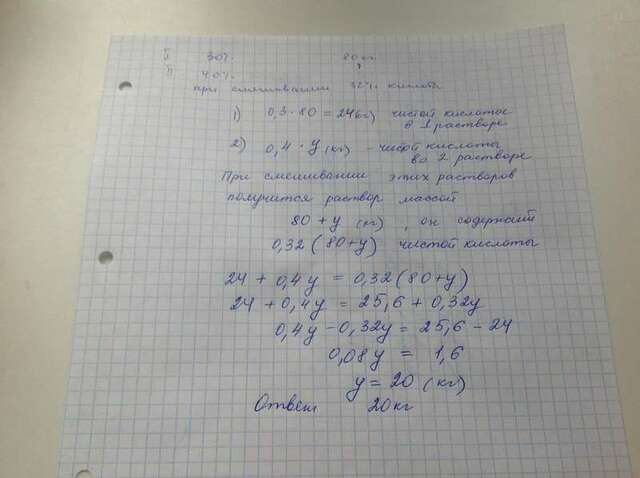 I 30% 80 кг.
II 40% ?
при смешивании 32% кислоты
1) 0,3 · 80 = 24(кг) чистой кислоты
в 1 растворе
2) 0,4 · y (кг) - чистой кислоты
во 2 растворе
При смешивании этих растворов
получится раствор массой
80 + y (кг) , он содержит
0,32 (80+y) чистой кислоты
24 + 0,4y = 0,32(80+y)
24 + 0,4y = 25,6 + 0,32y
0,4y - 0,32y = 25,6 - 24
0,08y = 1,6
y = 20 (кг)
Ответ 20кг